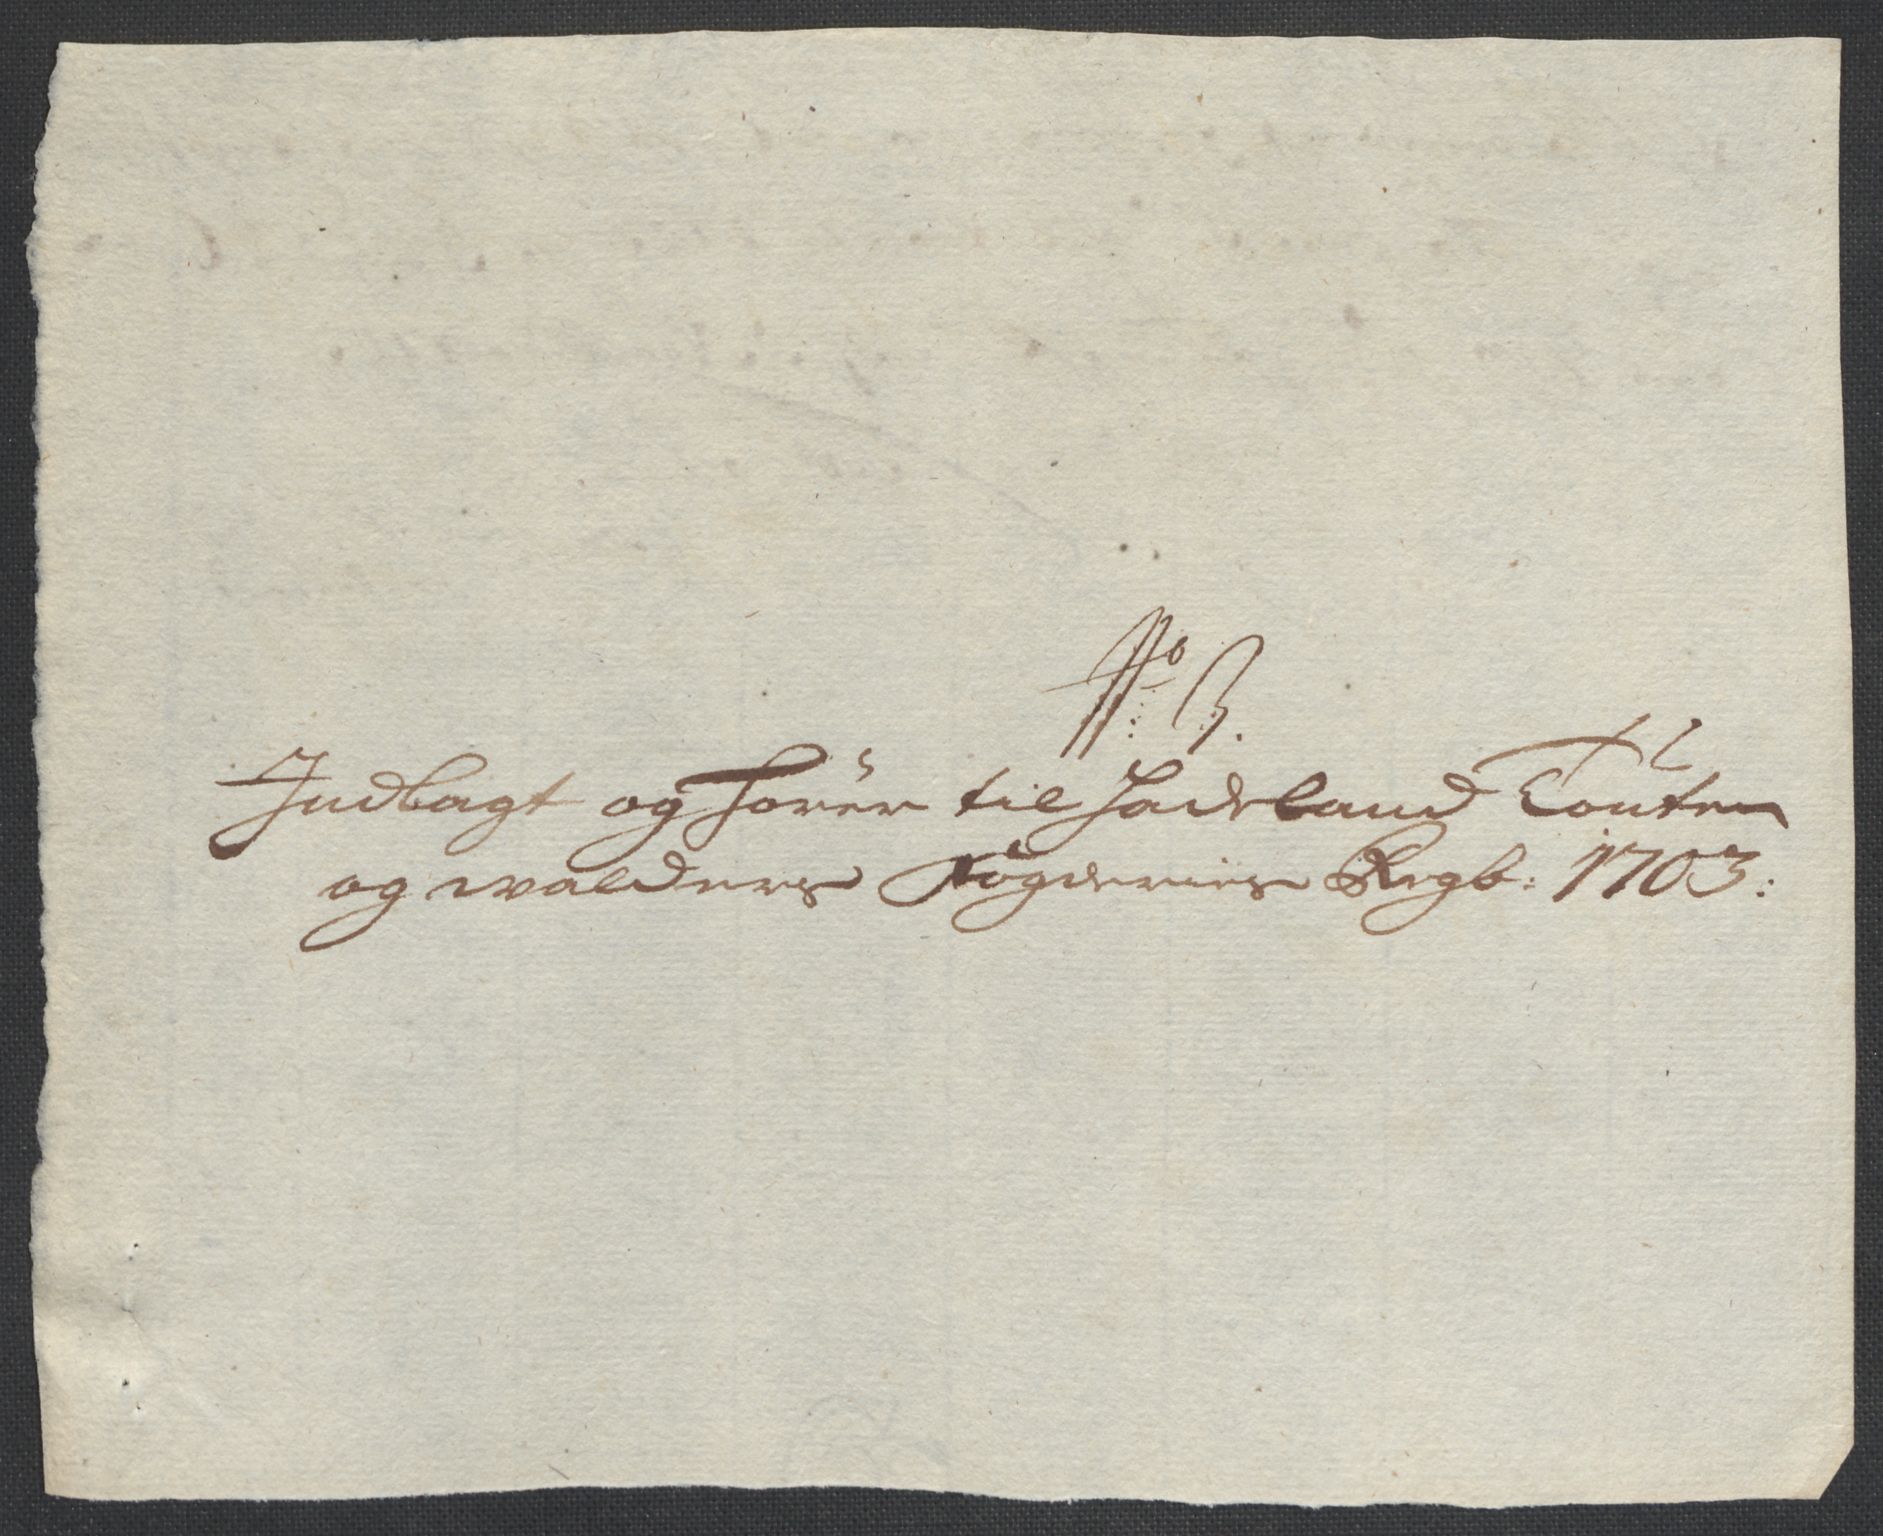 No 3.
Indlagt og hörer til Hadeland Touten
og walders Fögderies Regb: 1703: